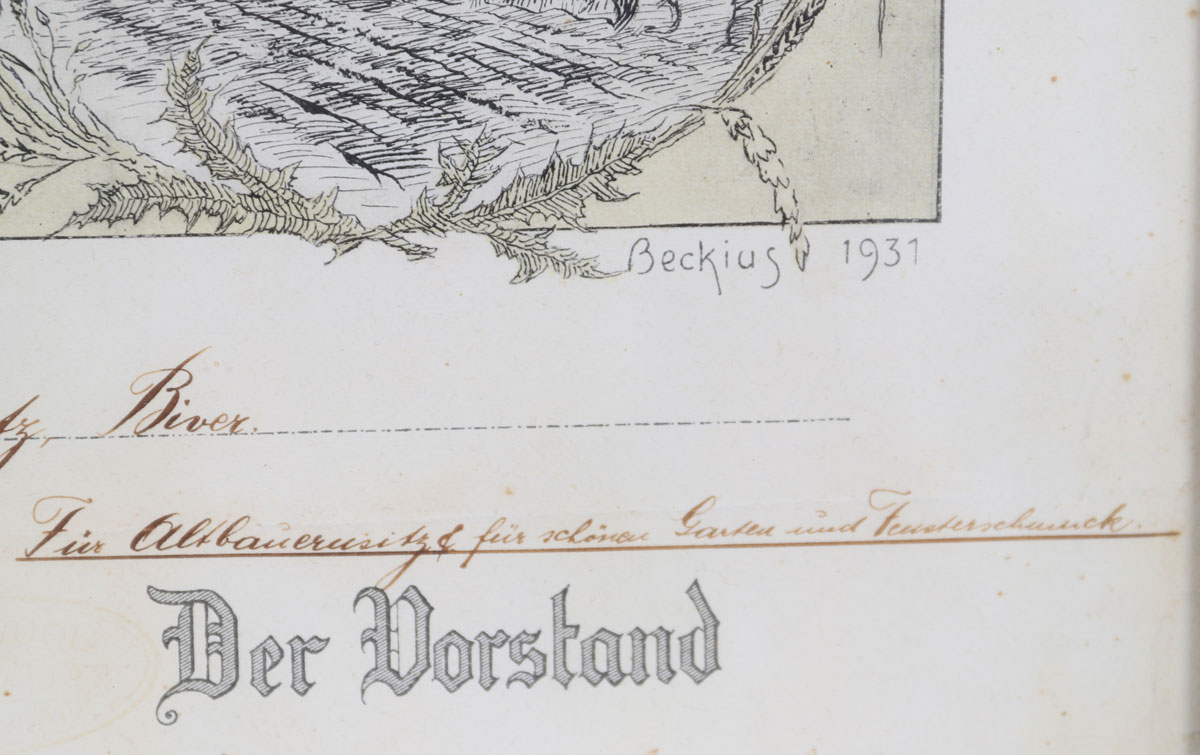 Beckius 1931
tz, Biver.
Für Altbauernsitz & für schönen Garten und Fensterschmuck.
Der Vorstand